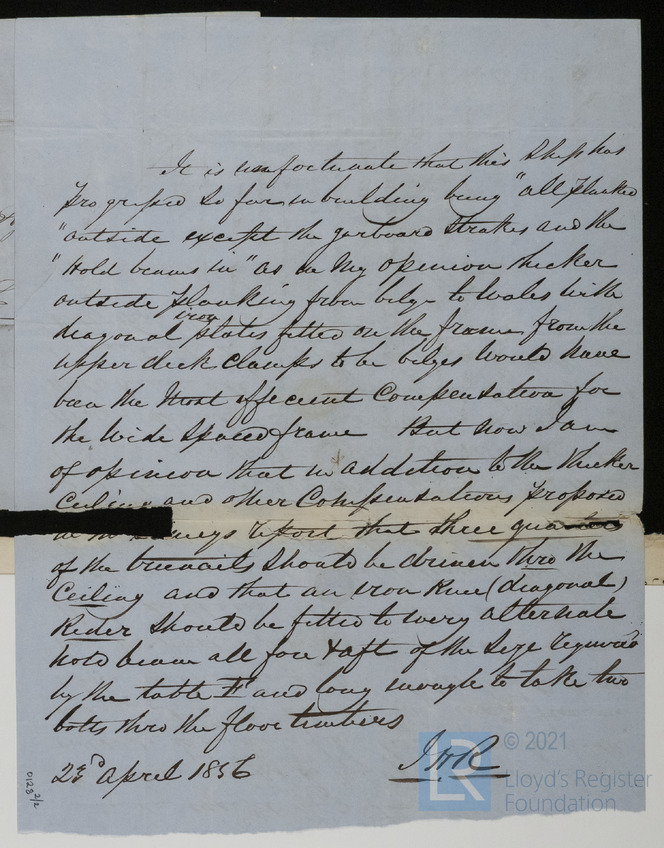 It is unfortunate that this Ship has
progressed so far in building being "all planked
"outside except the garboard strakes and the
"Hold beams in" as in my opinion thicker
outside planking from bilge to wales with
iron
diagonal plates fitted on the frame from the
upper deck clamps to the bilges would have
been the most efficient Compensation for
the wide spaced frame But now I am
of opinion that in addition to the thicker
Ceiling and other Compensations proposed
in the report that three quarters
of the treenails should be driven thro the
Ceiling and that an iron Knee (diagonal)
Rider should be fitted to every alternate
hold beam all fore & aft of the size required
by the table F and long enough to take two
bolts thro the floor timbers
23d April 1856
0123 2/2
© 2021
LR
Lloyd's Register
Foundation